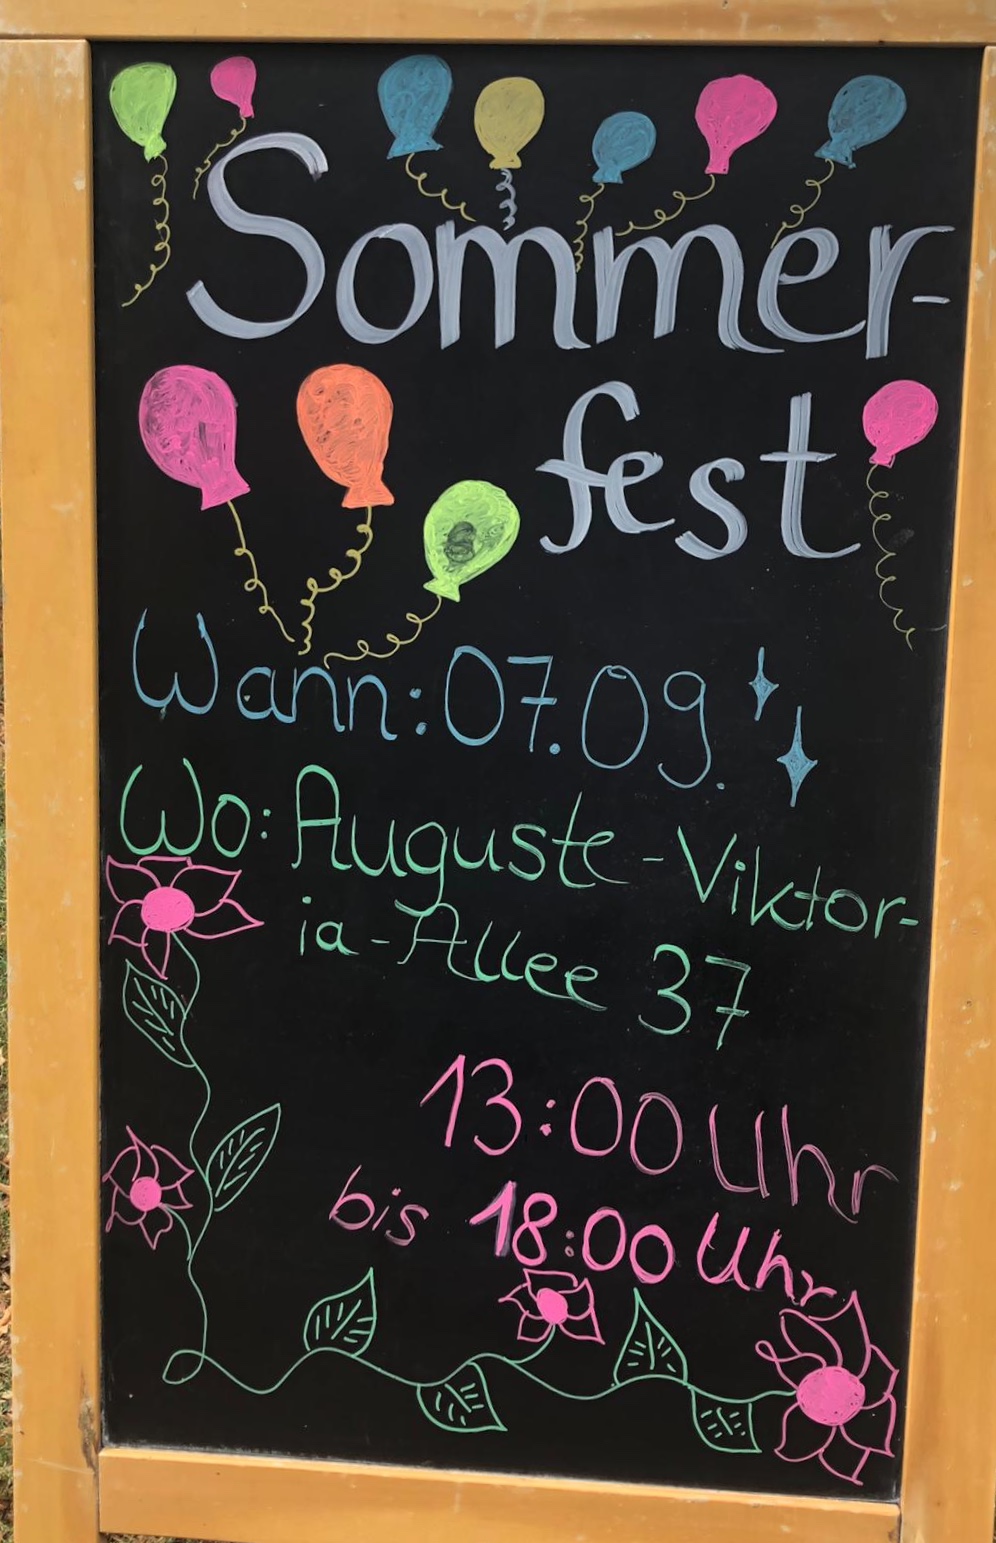 Sommer-
fest
Wann: 07.09.
Wo: Auguste-Viktor-
ia-Allee 37
13:00 Uhr
bis 18:00 Uhr